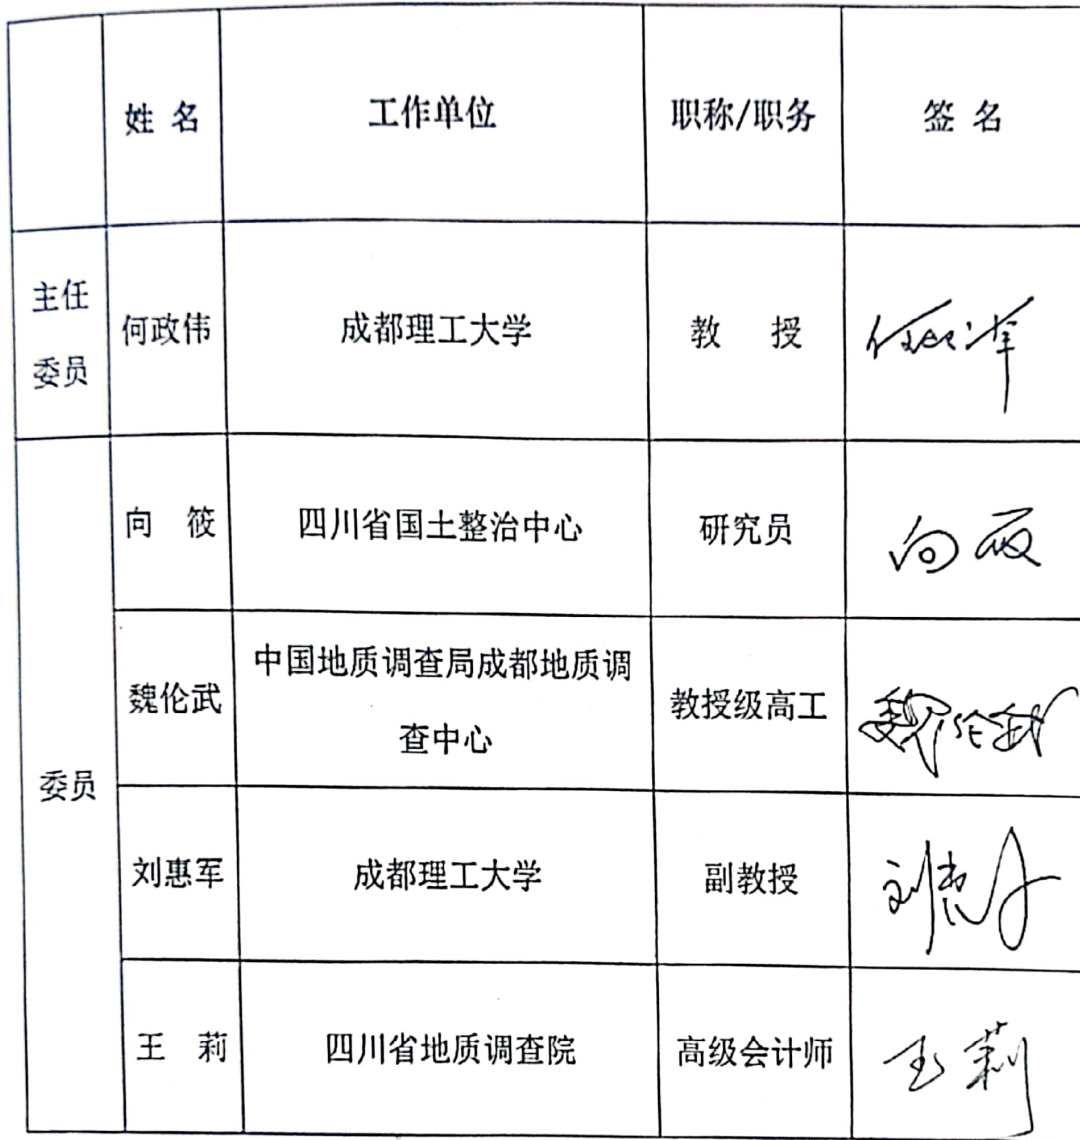 姓 名 工作单位 职称/职务 签 名
主任
委员
何政伟 成都理工大学 教 授
向 筱 四川省国土整治中心 研究员 向筱
委员
魏伦武 中国地质调查局成都地质调
查中心
教授级高工 魏伦武
刘惠军 成都理工大学 副教授 刘惠军
王 莉 四川省地质调查院 高级会计师 王莉